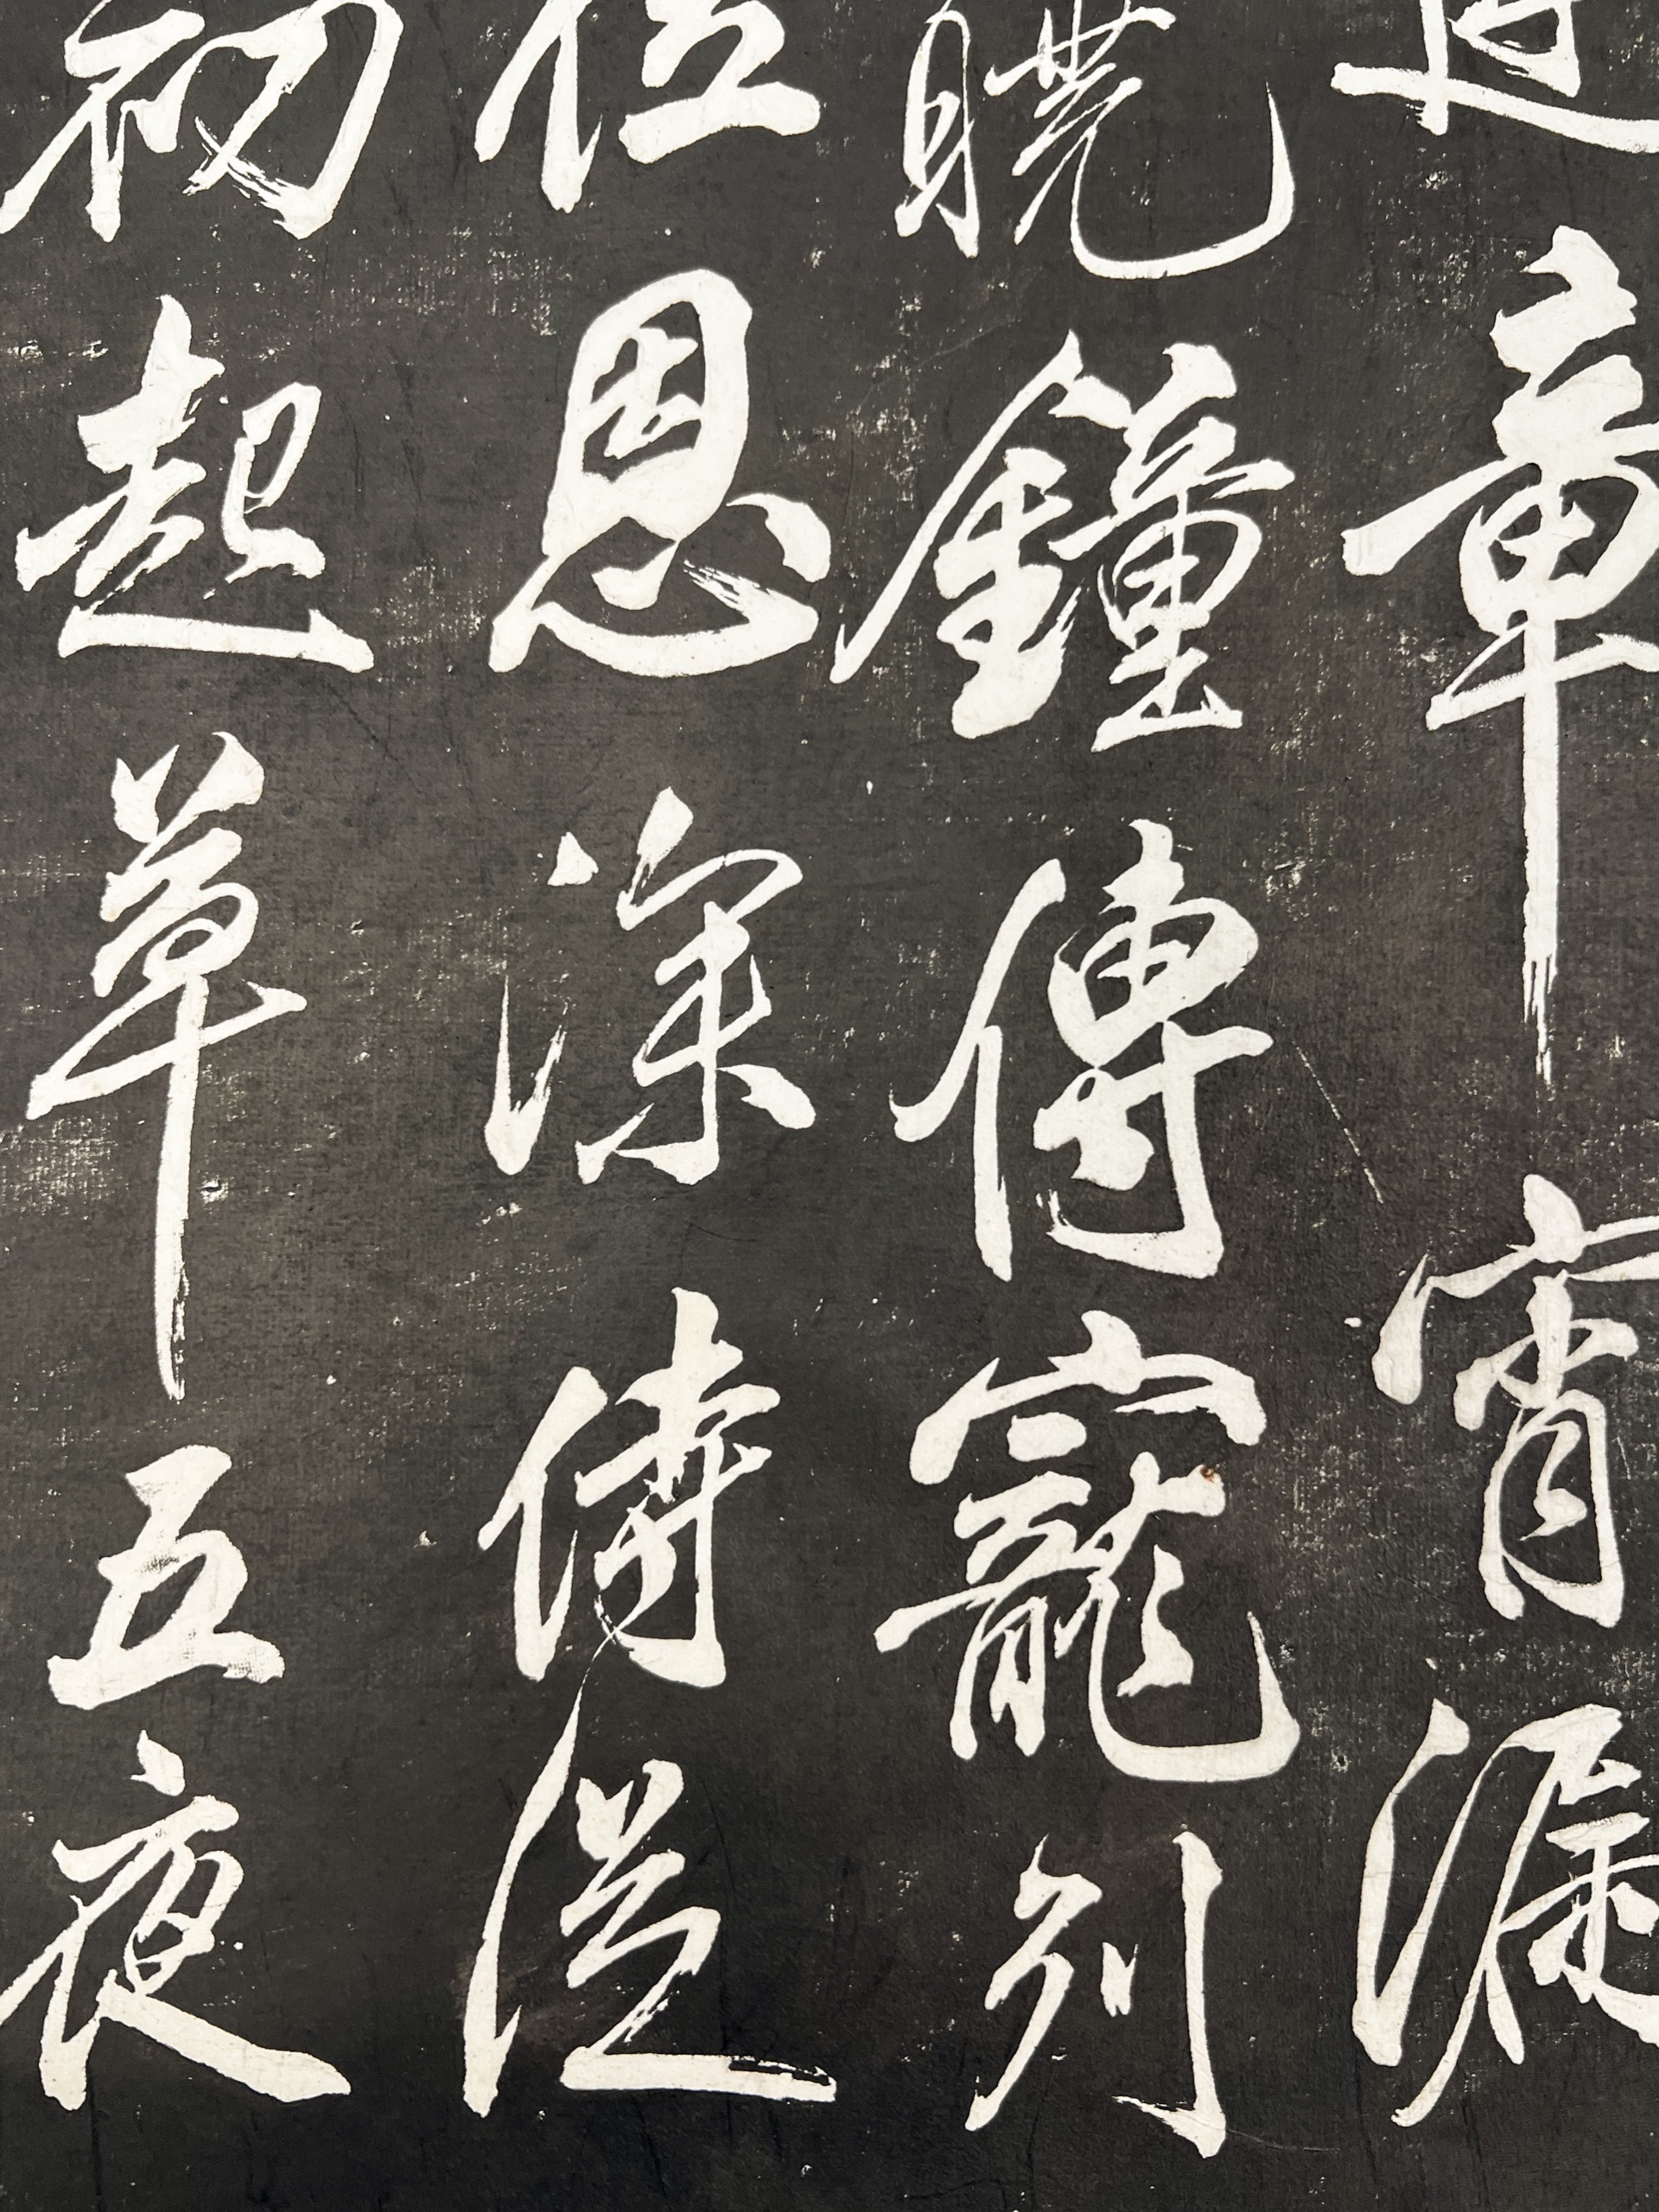 章宵漏
曉鐘傳寵列
位恩深侍從
初起草五夜